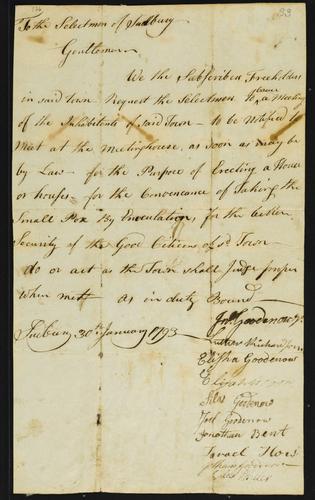 33
To the Selectmen of Sudbury
Gentlemen
We the Subscribers Freeholders
in said town Request the Selectmen to cause a Meeting
of the Inhabitants of said Town - to be Notifed to
Meet at the Meetinghouse, as soon as may be
by Law - for the Purpose of Erecting a House
or houses, for the Conveneance of Taking the
Small Pox By Enoculation, for the better
Security of the Good Citizens of sd Town
do or act as the Town shall Judge proper
when mett - as in duty Bound -
Sudbury 30th January 1793 -
Jno Goodenow
Elisha Goodenow
Silas Goodenow
Joel Goodenow
Jonathan Bent
Israel How